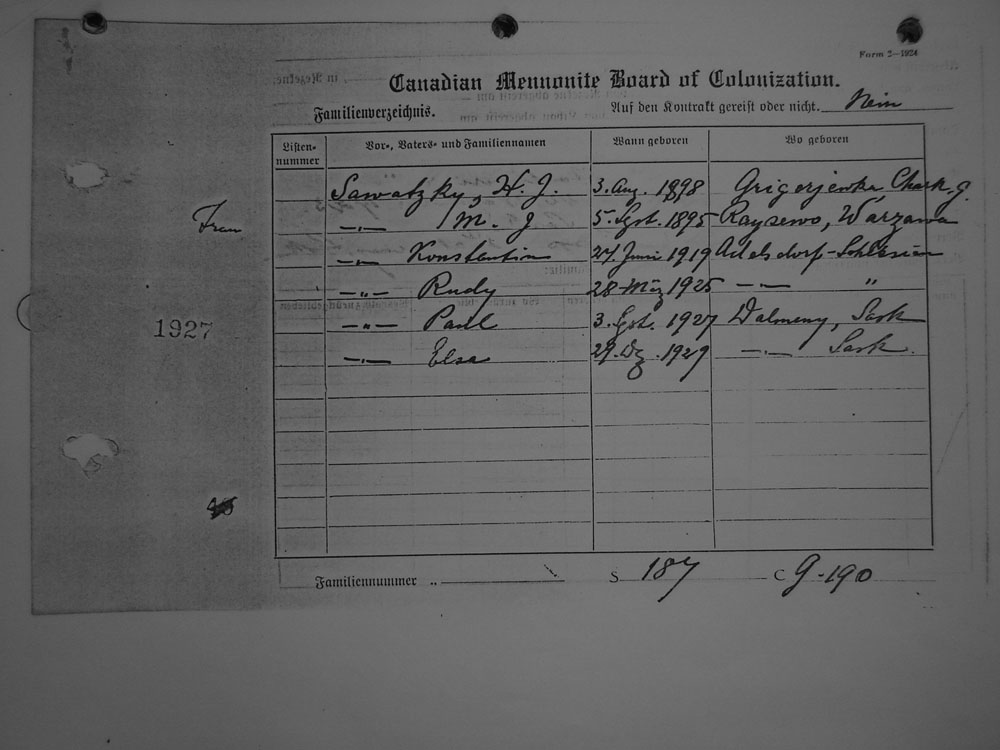 Form 2—1924
Canadian Mennonite Board of Colonization.
Familienverzeichnis. Auf den Kontrakt gereist oder nicht. Nein
Listen-nummer Vor-, Vaters- und Familiennamen Wann geboren Wo geboren
Sawatzky, H. J. 3. Aug. 1898 Grigorjewka Chark. G.
Frau —"— M. J. 5. Spt. 1895 Warzawa
—"— Konstantin 27 Juni 1919 Adelsdorf-Schlesien
—"— Rudy 28 März 1925 —"— "
1927
—"— Paul 3. 1927 Dalmeny, Sask
—"— Elsa 29. Dz. 1929 —"— Sask.
Familiennummer .. S 187 C G-190